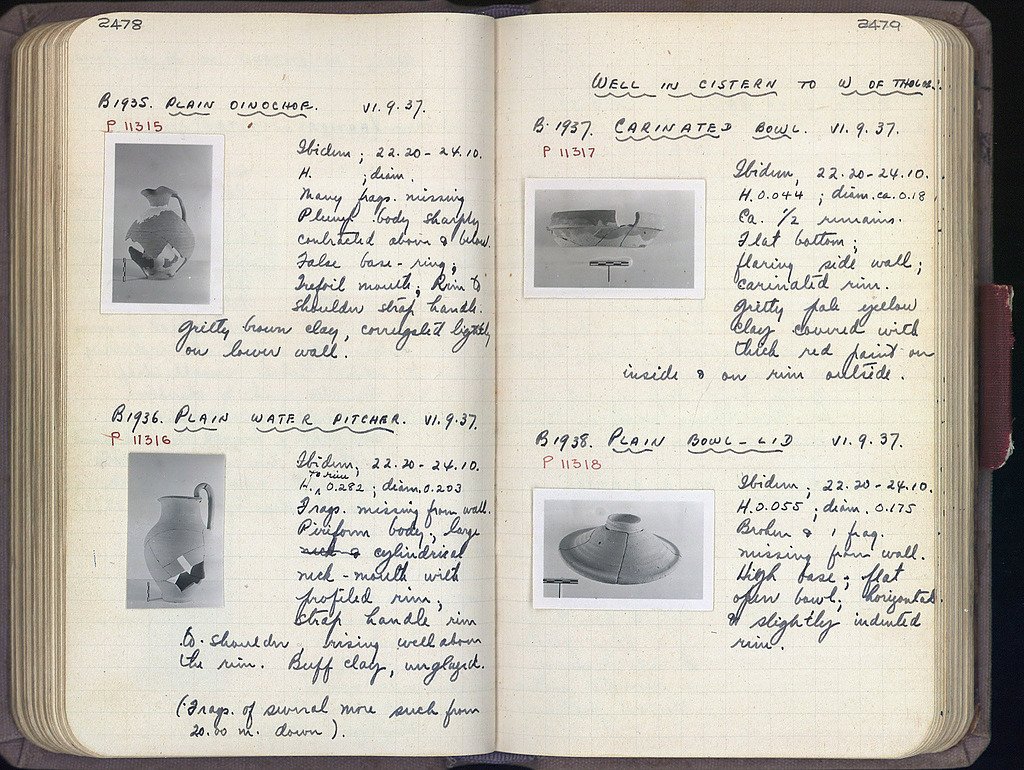 2478
B1935. PLAIN OINOCHOE. VI.9.37.
P 11315
Ibidem; 22.20-24.10.
H. ; diam.
Many frags. missing
Plump body sharply
contracted above & below.
False base-ring;
Trefoil mouth; Rim to
shoulder strap handle.
Gritty brown clay, corrugated lightly
on lower wall.
B1936. PLAIN WATER PITCHER. VI.9.37.
P 11316
Ibidem, 22.20-24.10.
to rim
H. ‸ 0.282; diam. 0.203
Frags. missing from wall.
Piriform body; large
neck & cylindrical
neck-mouth with
profiled rim;
strap handle rim
to shoulder, rising well above
the rim. Buff clay, unglazed.
(Frags. of several more such from
20.00 m. down).
2479
WELL IN CISTERN TO W. OF THOLOS.
B.1937. CARINATED BOWL. VI.9.37.
P 11317
Ibidem, 22.20-24.10.
H. 0.044; diam. ca. 0.18
Ca. 1/2 remains.
Flat bottom;
flaring side wall;
carinated rim.
Gritty pale yellow
clay covered with
thick red paint on
inside & on rim outside.
B1938. PLAIN BOWL-LID VI.9.37.
P 11318
Ibidem; 22.20-24.10.
H. 0.055; diam. 0.175
Broken & 1 frag.
missing from wall.
High base; flat
open bowl; horizontal
& slightly indented
rim.